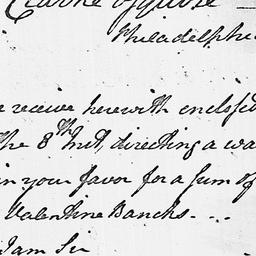 Philadelphi
receive herewith enclosed
the 8th Inst, directing a wa
in your favor for a Sum of
Valentine Bancks. ...
I am Sir